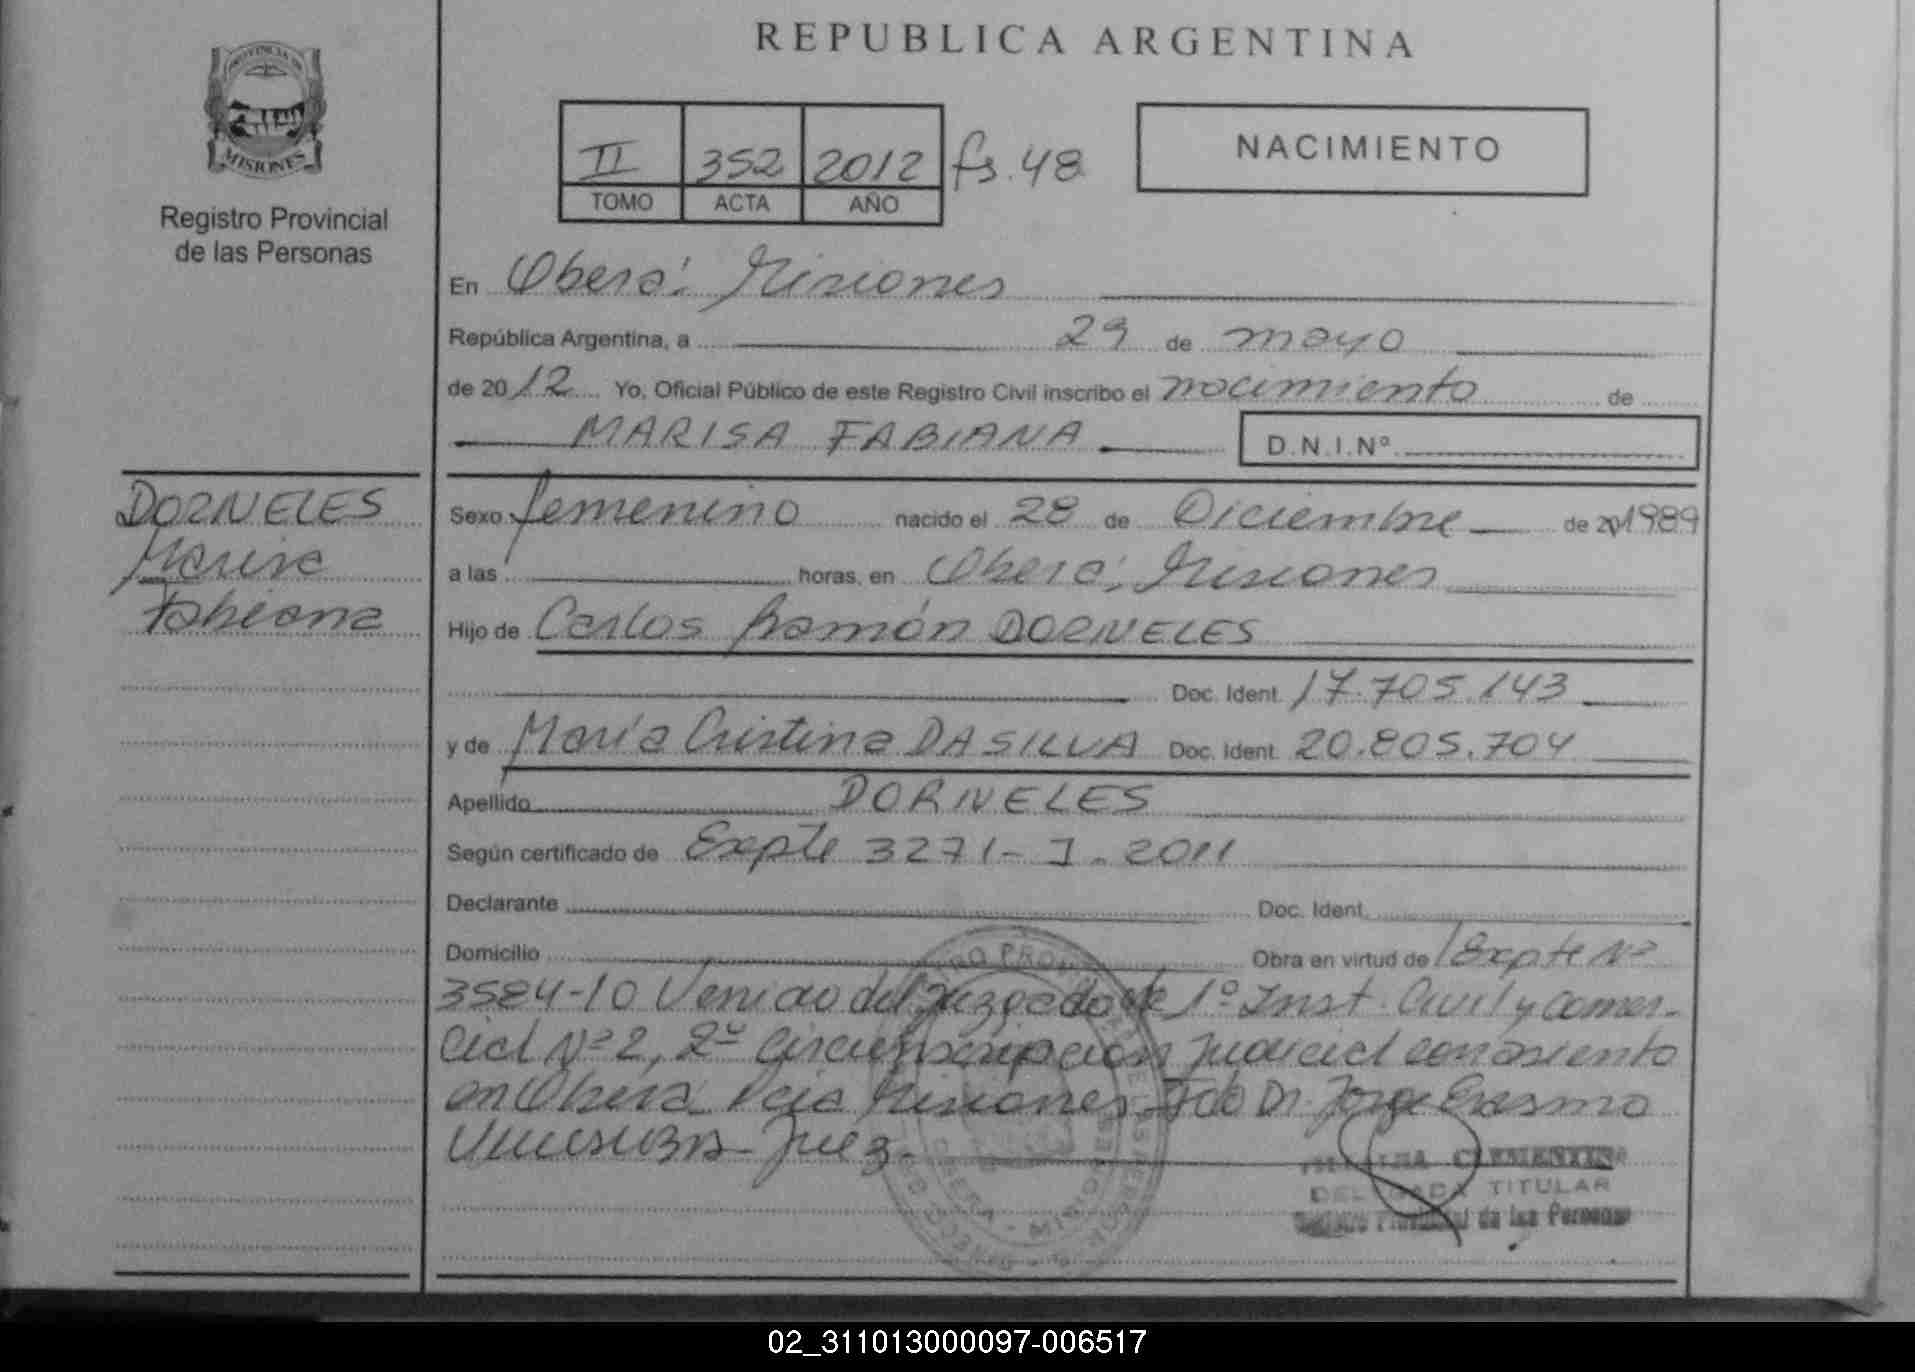 REPUBLICA ARGENTINA
PROVINCIA DE
MISIONES
Registro Provincial
de las Personas
II 352 2012 fs. 48
TOMO ACTA AÑO
NACIMIENTO
En Oberá: Misiones
República Argentina, a 29 de mayo
de 2012 Yo, Oficial Público de este Registro Civil inscribo el nacimiento de
MARISA FABIANA D.N.I.Nº
DORNELES
Marisa
Fabiana
Sexo femenino nacido el 28 de Diciembre de 20 1989
a las horas, en Oberá; Misiones
Hijo de Carlos Ramón DORNELES
Doc. Ident. 17.705.143
y de María Cristina DASILVA Doc. Ident. 20.805.704
Apellido DORNELES
Según certificado de Expte 3271-J-2011
Declarante Doc. Ident.
Domicilio Obra en virtud de Expte Nº
3584-10 Venido del Juzgado de 1º Inst. Civil y Comer-
cial Nº 2, 2º Circunscripción Judicial con asiento
en Oberá Pcia Misiones. Fdo Dr. Jorge Erasmo
Juez.
CLEMENTINA
DELEGADA TITULAR
Registro Provincial de las Personas
OBERA - MISIONES
02_311013000097-006517